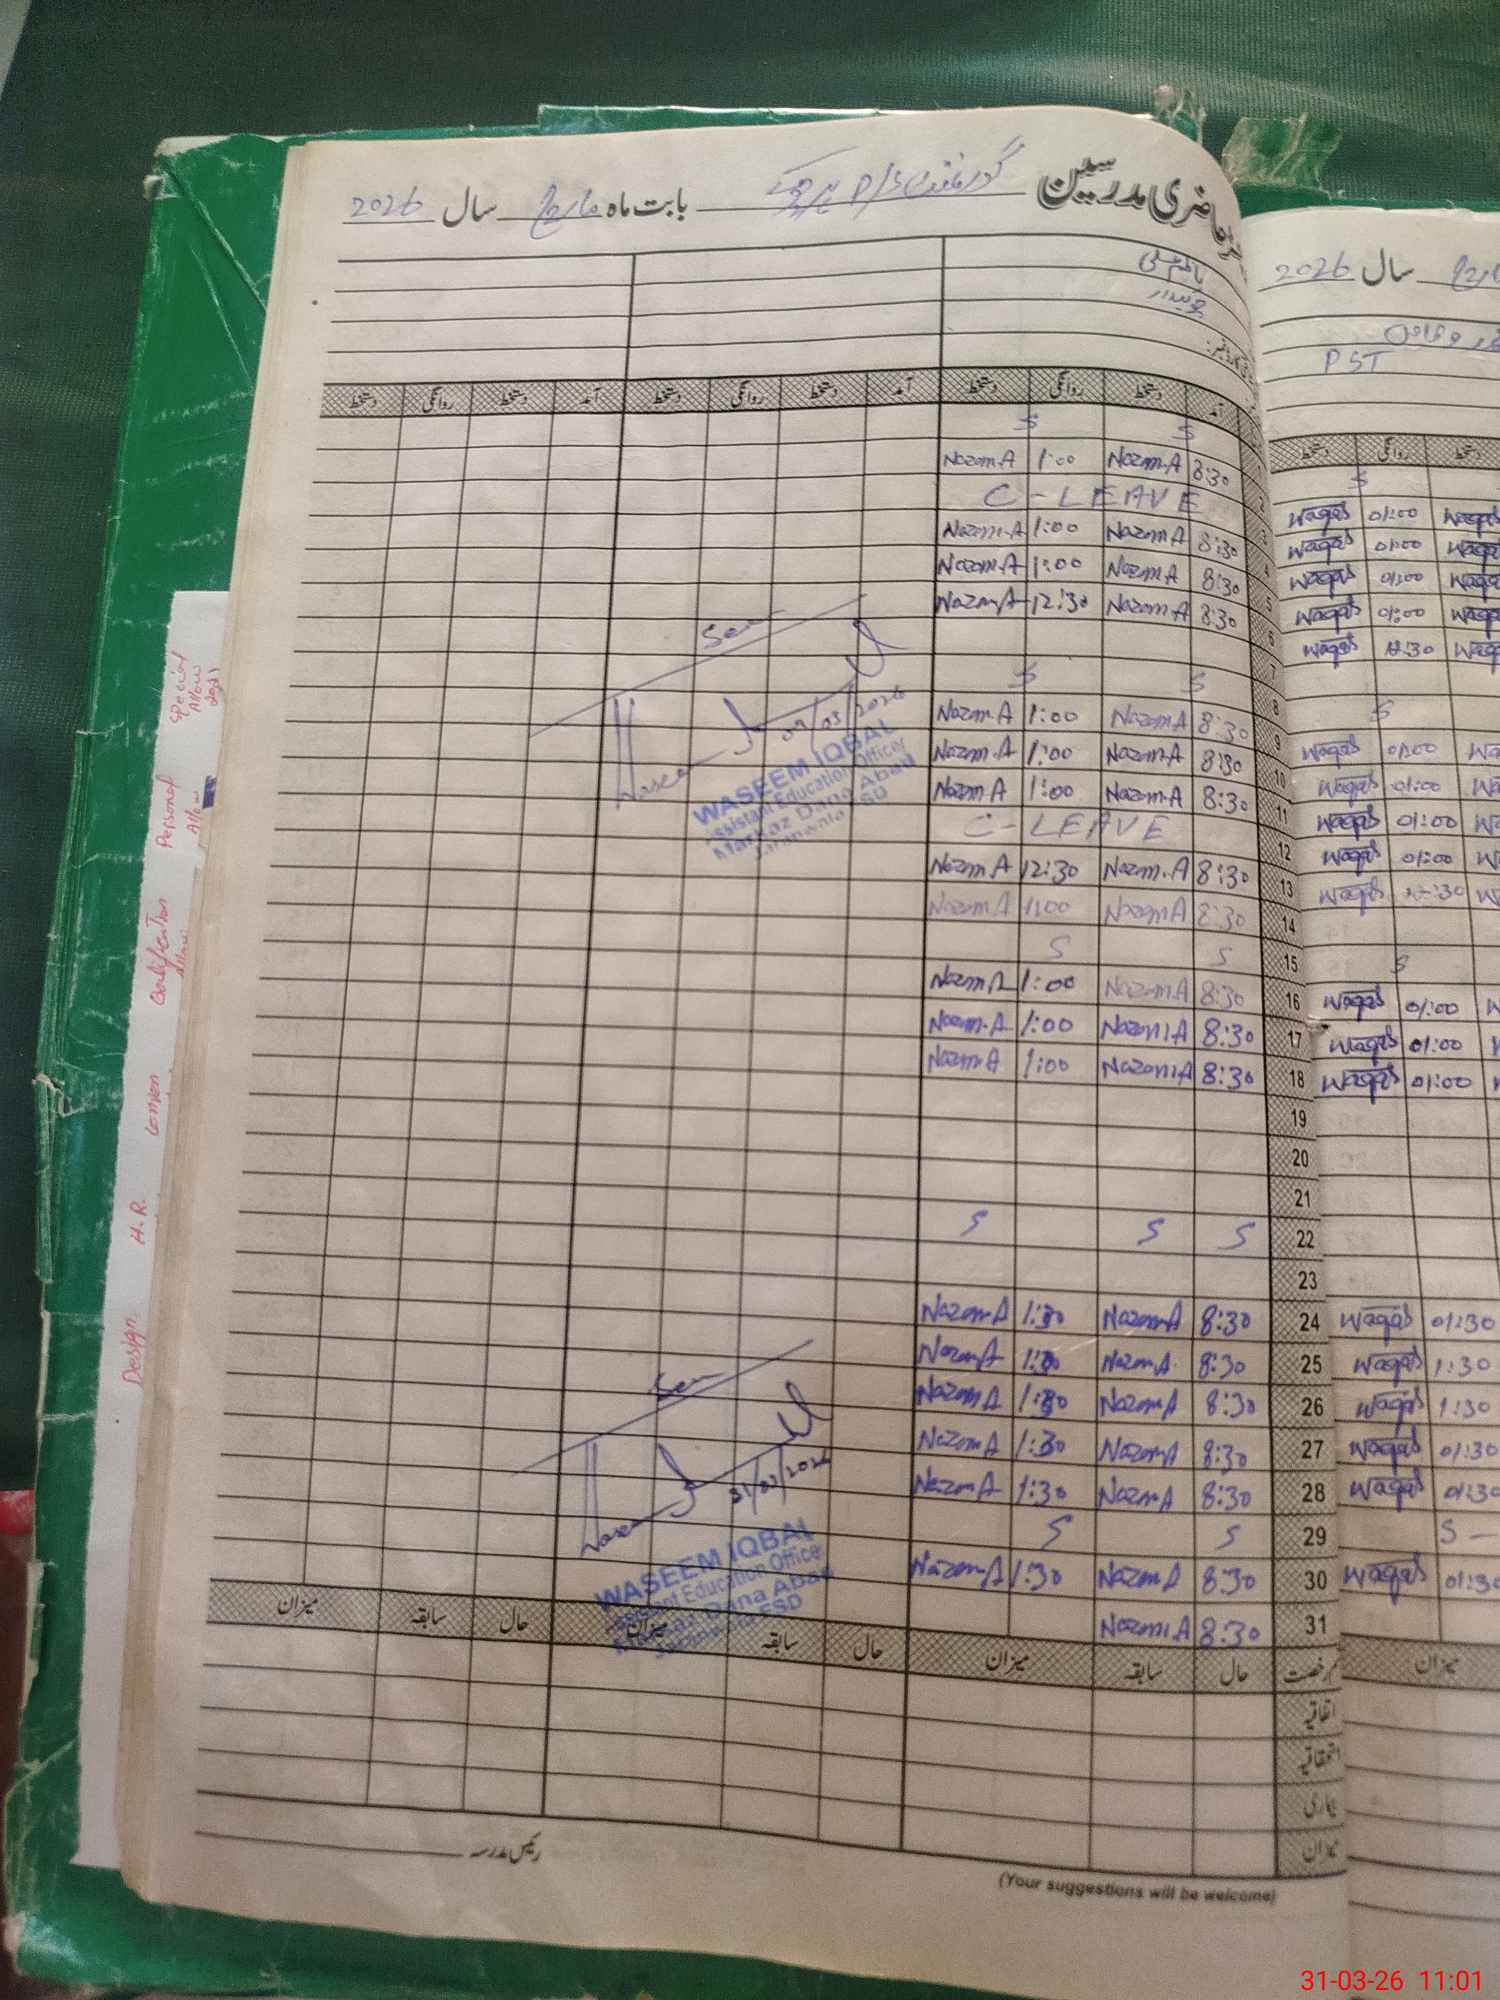 حاضری مدرسین گورنمنٹ P/S بابت ماہ مارچ سال 2026
ناظم علی
چوکیدار
آمد دستخط روانگی دستخط آمد دستخط روانگی دستخط آمد دستخط روانگی دستخط
1 S S
2 8:30 Nazam.A 1:00 Nazam.A
3 C-LEAVE
4 8:30 Nazam.A 1:00 Nazam.A
5 8:30 Nazam.A 1:00 Nazam.A
6 8:30 Nazam.A 12:30 Nazam.A
7
8 S S
9 8:30 Nazam.A 1:00 Nazam.A
10 8:30 Nazam.A 1:00 Nazam.A
11 8:30 Nazam.A 1:00 Nazam.A
12 C-LEAVE
13 8:30 Nazam.A 12:30 Nazam.A
14 8:30 Nazam.A 1:00 Nazam.A
15 S S
16 8:30 Nazam.A 1:00 Nazam.A
17 8:30 Nazam.A 1:00 Nazam.A
18 8:30 Nazam.A 1:00 Nazam.A
19
20
21
22 S S S
23
24 8:30 Nazam.A 1:30 Nazam.A
25 8:30 Nazam.A 1:30 Nazam.A
26 8:30 Nazam.A 1:30 Nazam.A
27 8:30 Nazam.A 1:30 Nazam.A
28 8:30 Nazam.A 1:30 Nazam.A
29 S S
30 8:30 Nazam.A 1:30 Nazam.A
31 8:30 Nazam.A
رخصت حال سابقہ میزان حال سابقہ میزان حال سابقہ میزان
اتفاقیہ
استحقاقیہ
بیماری
میزان
رئیس مدرسہ
(Your suggestions will be welcome)
Seen
09/03/2026
WASEEM IQBAL
Assistant Education Officer
Markaz Dana Abad
Jaranwala FSD
Seen
31/03/2026
WASEEM IQBAL
Assistant Education Officer
Markaz Dana Abad
Jaranwala FSD
Special Allow 2021
Personal Allow
Qualification Allow
Conven
H.R.
Design
مارچ سال 2026
PST
دستخط روانگی دستخط
S
Waqas 01:00 Waqas
Waqas 01:00 Waqas
Waqas 01:00 Waqas
Waqas 01:00 Waqas
Waqas 12:30 Waqas
S
Waqas 01:00
Waqas 01:00
Waqas 01:00
Waqas 01:00
Waqas 12:30
S
Waqas 01:00
Waqas 01:00
Waqas 01:00
Waqas 01:30
Waqas 1:30
Waqas 1:30
Waqas 01:30
Waqas 01:30
S
Waqas 01:30
میزان
31-03-26 11:01